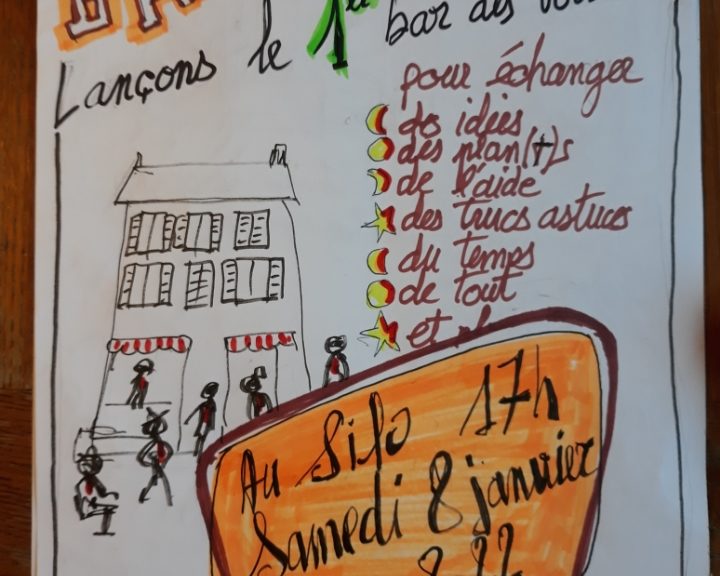 Lançons le 1er bar des
pour échanger
do idées
des plan(t)s
de l'aide
des trucs astuces
du temps
de tout
et
Au Silo 17h
Samedi 8 janvier